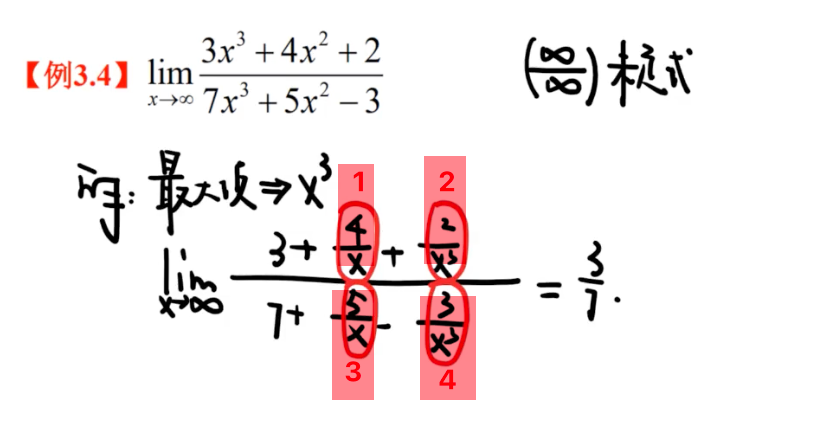 【例3.4】 lim x→∞ (3x³ + 4x² + 2)/(7x³ + 5x² − 3) (∞/∞) 未定式
解: 最大项 ⇒ x³ 1 2
lim x→∞ (3 + 4/x + 2/x³)/(7 + 5/x − 3/x³) = 3/7.
3 4